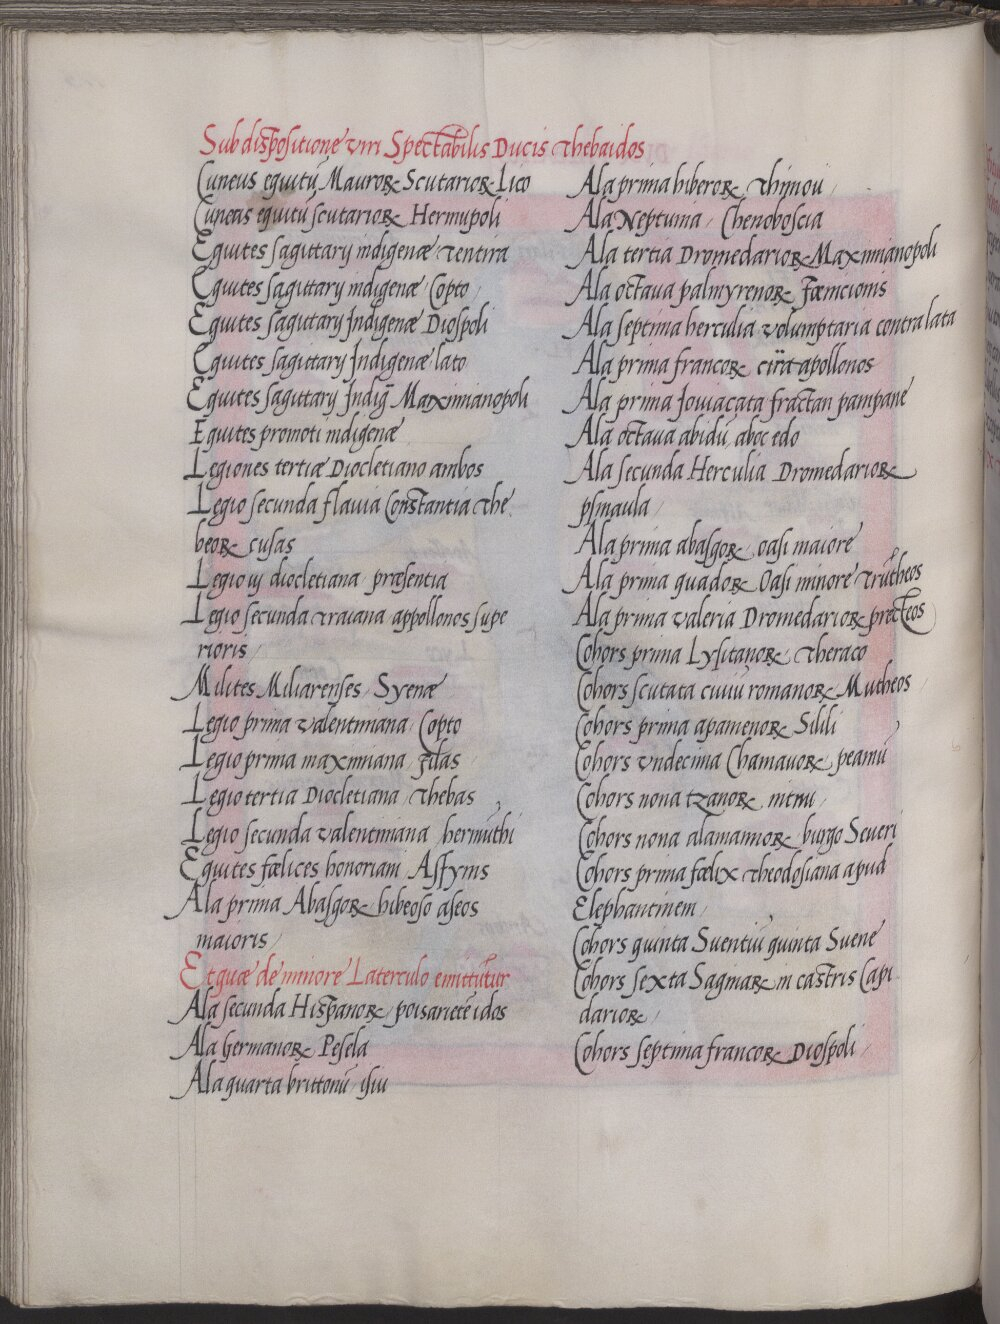 Sub dispositione viri Spectabilis Ducis Thebaidos
Cuneus equitū Mauroꝝ Scutarioꝝ Lico
Cuneus equitū scutarioꝝ Hermupoli
Equites sagittarij indigenæ Tentira
Equites sagittarij indigenæ Copto
Equites sagittarij Indigenæ Diospoli
Equites sagittarij Indigenæ lato
Equites sagittarij Indig̃ Maximianopoli
Equites promoti indigenæ
Legiones tertiæ Diocletiano ambos
Legio secunda flavia Constantia The
beoꝝ cusas
Legio iij diocletiana præsentia
Legio secunda Traiana appollonos supe
rioris
Milites Miliarenses Syenæ
Legio prima valentiniana Copto
Legio prima maximiana filas
Legio tertia Diocletiana Thebas
Legio secunda valentiniana hermuthi
Equites fœlices honoriani Assyrus
Ala prima Abasgoꝝ hibeoso aseos
maioris
Et quæ de minore Laterculo emittūtur
Ala secunda Hispanoꝝ poisarietē idos
Ala Germanoꝝ Pesela
Ala quarta brittonū isiu
Ala prima hiberoꝝ Thimou
Ala Neptunia Chenoboscia
Ala tertia Dromedarioꝝ Maximianopoli
Ala octaua palmyrenoꝝ fœnicionis
Ala septima herculia volumptaria contra lata
Ala prima francoꝝ cira apollonos
Ala prima Iouiacata fractan pampane
Ala octaua abidū aboc edo
Ala secunda Herculia Dromedarioꝝ
psinaula
Ala prima abasgoꝝ oasi maiore
Ala prima quadoꝝ Oasi minore Trutheos
Ala prima valeria Dromedarioꝝ precteos
Cohors prima Lysitanoꝝ Theraco
Cohors scutata ciuiū romanoꝝ Mutheos
Cohors prima apamenoꝝ Silili
Cohors vndecima Chamauoꝝ peamū
Cohors nona tzanoꝝ nitnu
Cohors nona alamannoꝝ burgo Seueri
Cohors prima fœlix Theodosiana apud
Elephantinem
Cohors quinta Suentiū quinta Suene
Cohors sexta Saginaꝝ in castris Lapi
darioꝝ
Cohors septima francoꝝ Diospoli